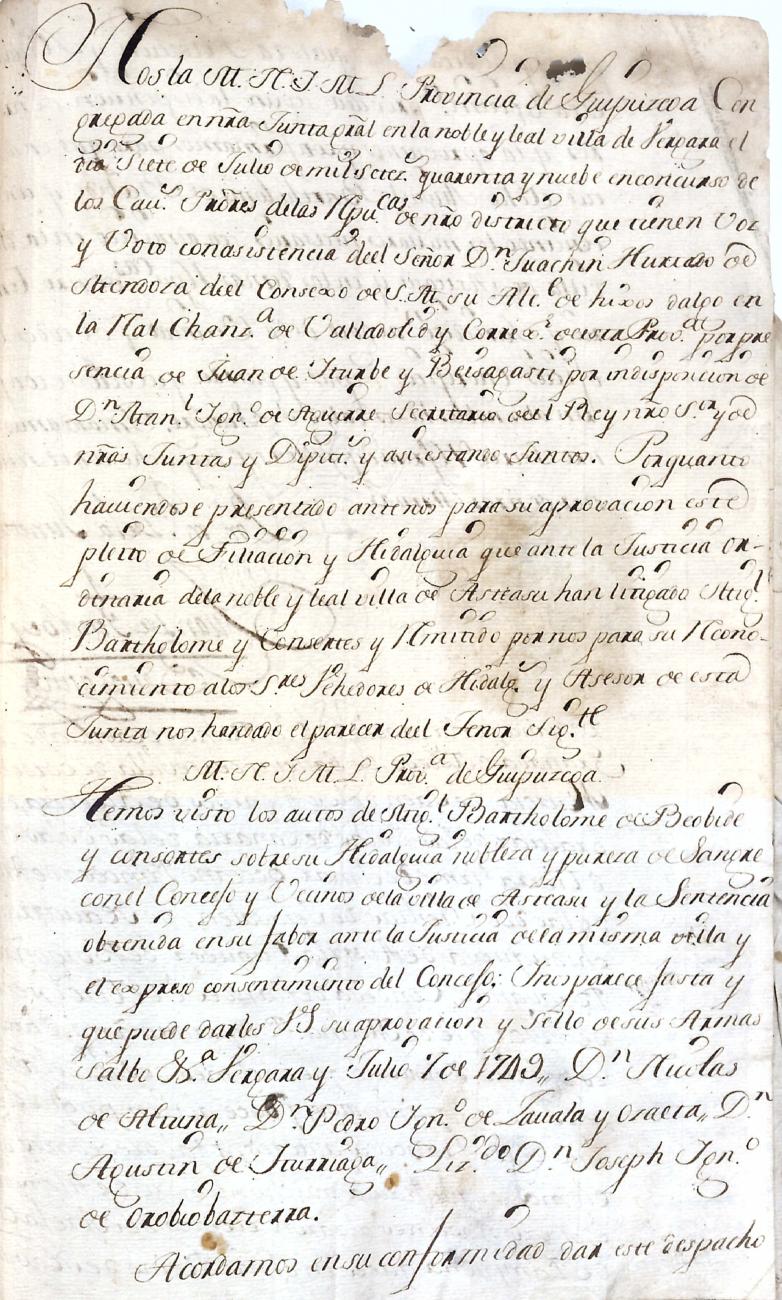 Nos la M. N. I M L Provincia de Guipuzcoa Con
gregada en nrã Junta grãl en la noble y leal villa de Vergara el
dia Siete de Julio de mil Setez.s quarenta y nuebe en concurso de
los Cau.s Prõres de las Rpu.cas de nrõ districto que tienen Voz
y Voto con asistencia deel Señor D.n Juachin Hurtado de
Mendoza deel Consexo de S. M. su Alc.e de hixos dalgo en
la Ral Chanz.a de Valladolid y Correx.r de esta Prov.a por pre
sencia de Juan de Iturbe y Beisagasti por indisposicion de
D.n Man.l Ign.o de Aguirre Secretario deel Rey nrõ S.or y de
nrãs Juntas y Diputt.s y asi estando Juntos. Por quanto
haviendose presentado ante nos para su aprovacion este
pleito de Filiacion y Hidalguia que ante la Justicia or-
dinaria de la noble y leal villa de Asteasu han litigado Mig.l
Bartholome y Consortes y Remitido por nos para su Recono-
cimiento a los S.res Vehedores de Hidalg.s y Asesor de esta
Junta nos han dado el parecer deel Tenor Sig.te
M. N. I. M. L. Prov.a de Guipuzcoa
Hemos visto los autos de Mig.l Bartholome de Beobide
y consortes sobre su Hidalguia nobleza y pureza de Sangre
con el Concejo y Vecinos de la villa de Asteasu y la Sentencia
obtenida en su fabor ante la Justicia de la misma villa y
el expreso consentimiento del Concejo; Y nos parece Justa y
que puede darles VS su aprovacion y Sello de sus Armas
salbo &.a Vergara y Julio 7 de 1749,, D.n Nicolas
de Altuna,, D.n Pedro Ign.o de Zavala y oraeta,, D.n
Agustin de Iturriaga,, Liz.do D.n Joseph Ign.o
de orobiobatterra.
Acordamos en su conformidad dar este despacho